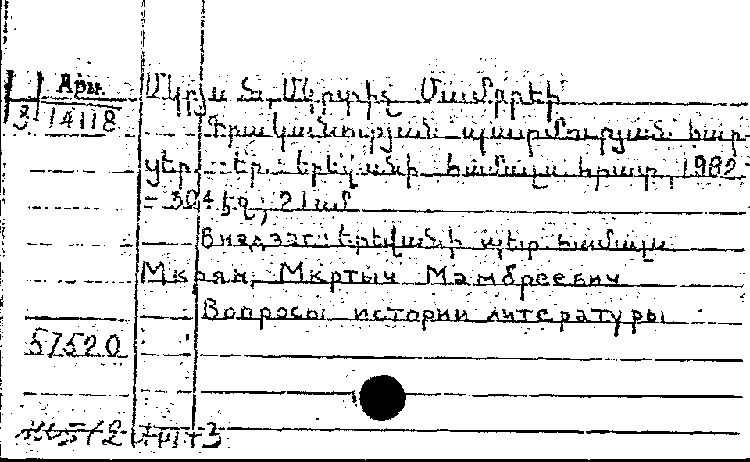 Арм.
3 14118
Մկրյան, Մկրտիչ Մամբրեի
Գրականության պատմության հար
ցեր. - Եր.: Երևանի համալս. հրատ., 1982.
- 304 էջ; 21 սմ
Երևանի պետ. համալս.
Мкрян, Мкртыч Мамбреевич
Вопросы истории литературы
57520